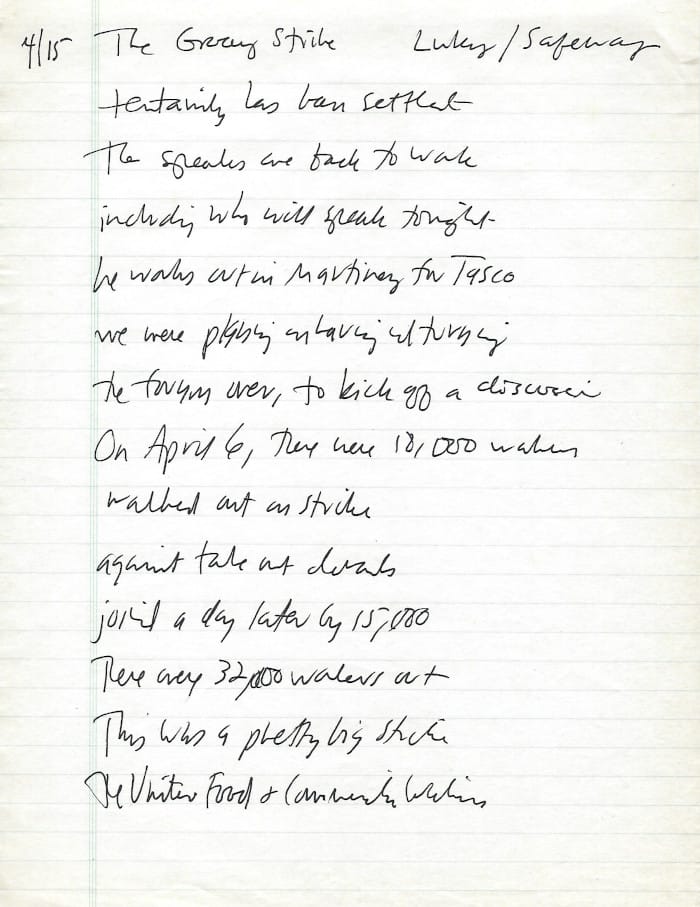 4/15 The Grocery Strike Lucky/Safeway
tentatively has been settled
The speakers are back to work
including who will speak tonight
he works out in Martinez for Tosco
we were planning on having
the forum over, to kick off a discussion
On April 6, there were 18,000 workers
walked out on strike
against take out demands
joined a day later by 15,000
There were 32,000 workers out
This was a pretty big strike
The United Food & Commercial Workers